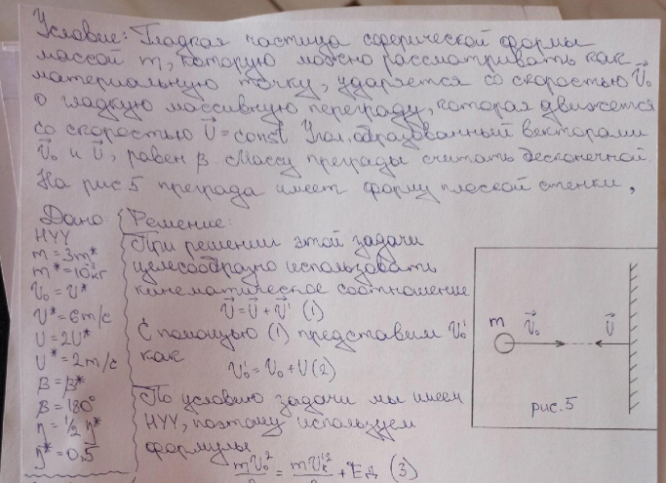 Условие: Гладкая частица сферической формы
массой m, которую можно рассматривать как
материальную точку, ударяется со скоростью V⃗₀
о гладкую массивную переграду, которая движется
со скоростью U⃗ = const Угол, образованный векторами
V⃗₀ и U⃗, равен β. Массу преграды считать бесконечной.
На рис 5 преграда имеет форму плоской стенки,
Дано
НУУ
m = 3m*
m* = 10⁻³кг
V₀ = V*
V* = 6м/с
U = 2U*
U* = 2м/с
β = β*
β = 180°
η = 1/2 η*
η* = 0,5
Решение:
При решении этой задачи
целесообразно использовать
кинематическое соотношение
V⃗ = U⃗ + V⃗' (1)
С помощью (1) представим V₀'
как
V₀' = V₀ + U (2)
По условию задачи мы имеем
НУУ, поэтому используем
формулы
mV₀'²/2 = mVₖ'²/2 + Eд (3)
m V⃗₀ U⃗
рис. 5